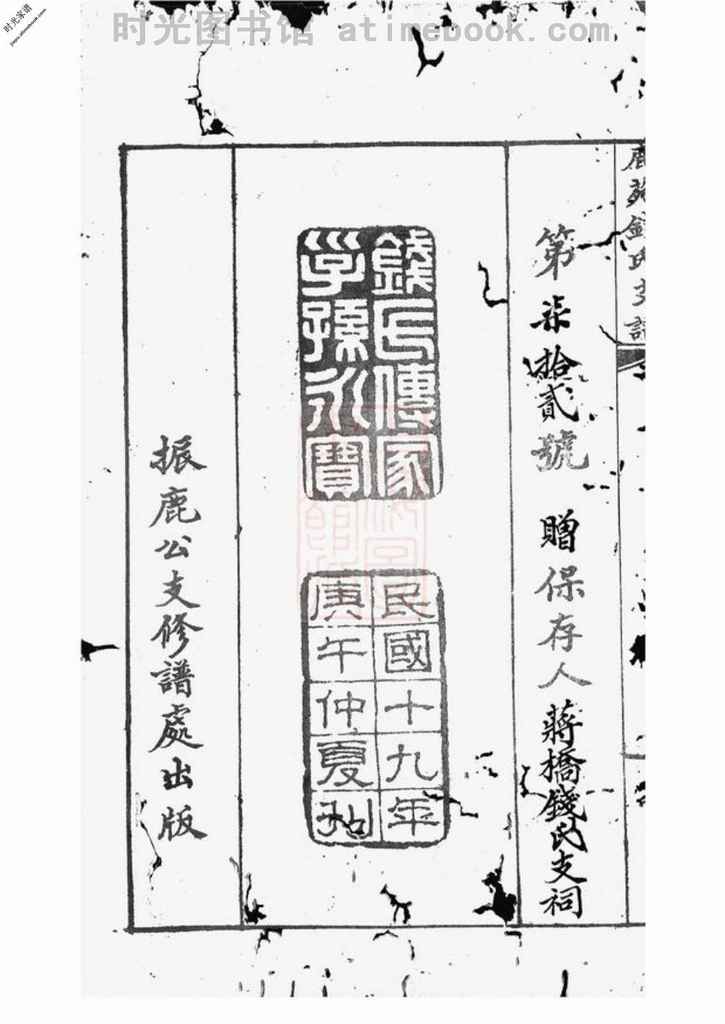 时光图书馆 atimebook.com
时光家谱
鹿苑錢氏支譜
第柒拾貳號 贈保存人蔣橋錢氏支祠
錢氏傳家
子孫永寶
民國十九年
庚午仲夏
振鹿公支修譜處出版